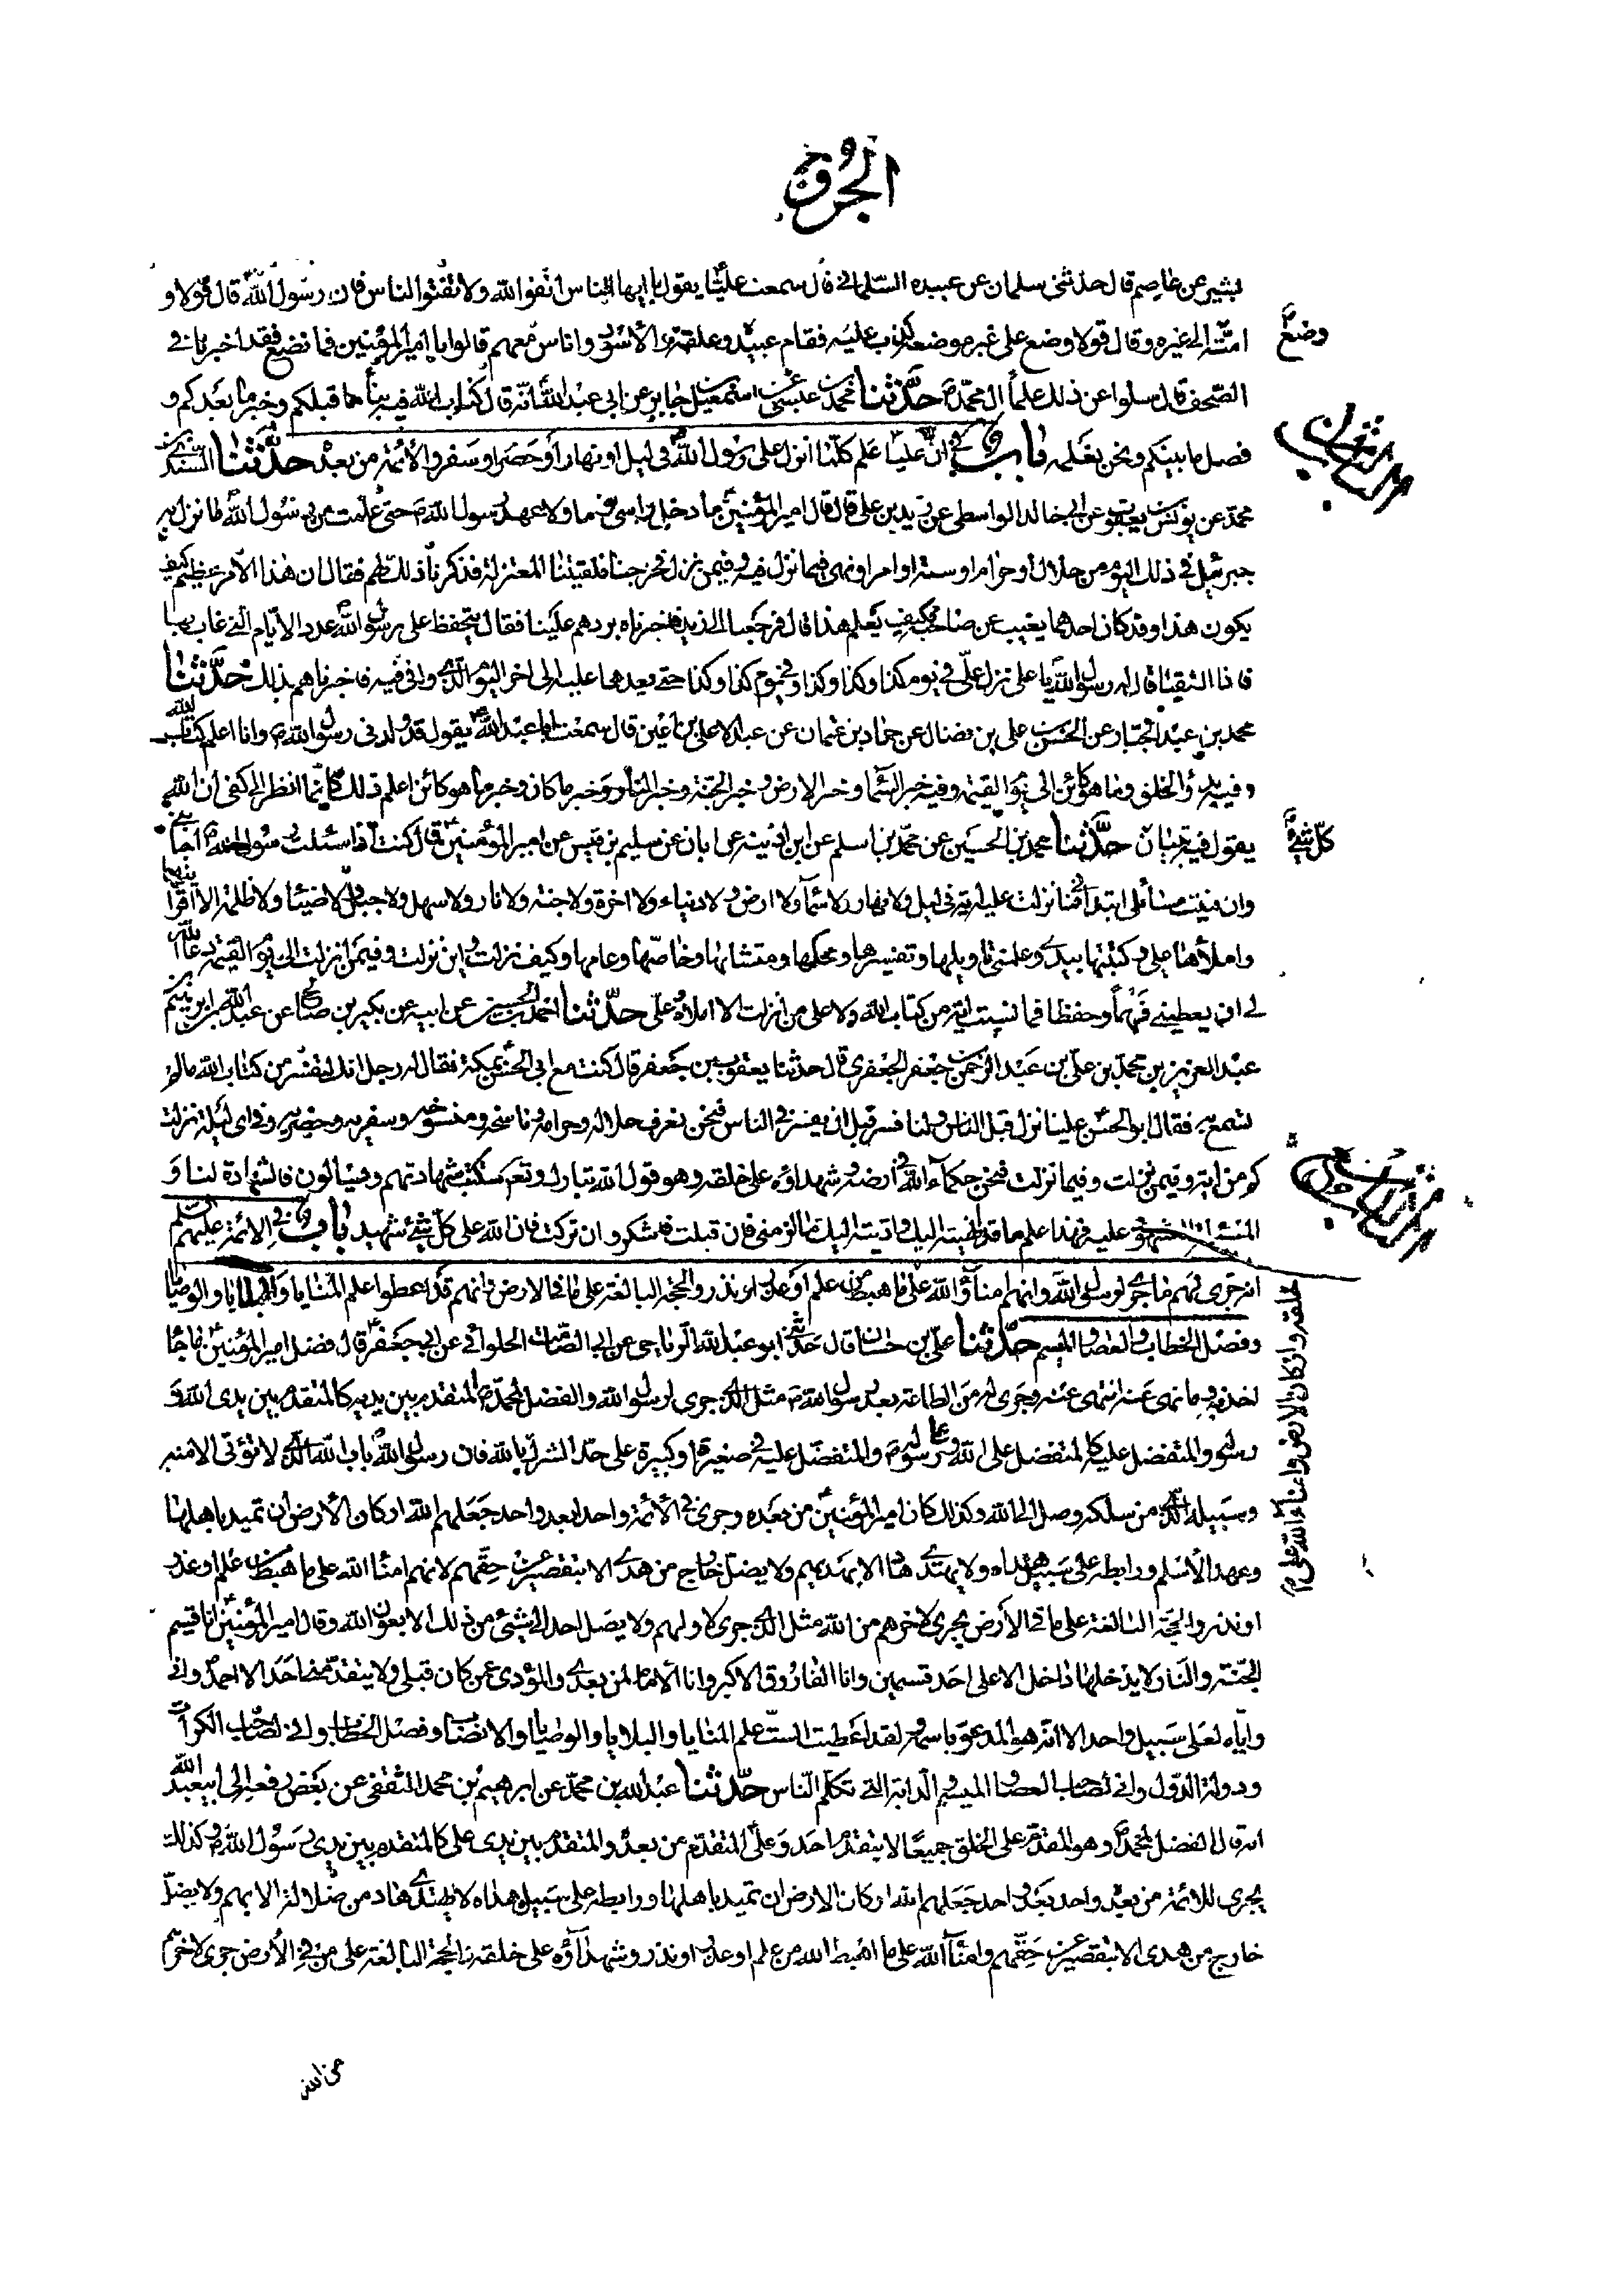 الجزء
بشير عن عاصم قال حدثني سلمان عن عبيده السلماني قال سمعت عليا يقول يا ايها الناس اتقوا الله ولا تفتوا الناس فان رسول الله قال قولا و
امته الى غيره وقال قولا وضع على غير موضعه كذب عليه فقام عبيدة وعلقمة والاسود واناس معهم قالوا يا امير المؤمنين فما نصنع فقد اخبرنا في
الصحف قال سلوا عن ذلك علماء ال محمد حدثنا محمد بن عيسى عن اسمعيل بن جابر عن ابي عبد الله انه قال كتاب الله فيه نبأ ما قبلكم وخبر ما بعدكم و
فصل ما بينكم ونحن نعلمه باب في ان عليا علم كلما انزل على رسول الله في ليل او نهار او حضر او سفر والائمة من بعده حدثنا السندي بن
محمد عن يونس بن يعقوب عن ابي خالد الواسطي عن زيد بن علي قال قال امير المؤمنين ما دخل راسي نوما ولا عهد رسول الله حتى علمت من رسول الله ما نزل به
جبرئيل في ذلك اليوم من حلال او حرام او سنة او امر او نهي فيما نزل فيه وفيمن نزل فخرجنا فلقيتنا المعتزلة فذكرنا ذلك لهم فقال ان هذا الامر عظيم كيف
يكون هذا وقد كان احدهما يغيب عن صاحبه فكيف يعلم هذا قال فرجعنا الى زيد فاخبرناه بردهم علينا فقال يتحفظ على رسول الله عدد الايام التي غاب بها
فاذا التقيا قال له رسول الله يا علي نزل علي في يوم كذا وكذا وكذا وفي يوم كذا وكذا حتى يعدهما عليه الى اخر اليوم الذي وافى فيه فاخبرناهم بذلك حدثنا
محمد بن عبد الجبار عن الحسن بن علي بن فضال عن حماد بن عثمان عن عبد الاعلى بن اعين قال سمعت ابا عبد الله يقول قد ولدني رسول الله وانا اعلم كتاب الله
وفيه بدؤ الخلق وما هو كائن الى يوم القيمة وفيه خبر السماء وخبر الارض وخبر الجنة وخبر النار وخبر ما كان وخبر ما هو كائن اعلم ذلك كانما انظر الى كفي ان الله
يقول فيه تبيان حدثنا محمد بن الحسين عن محمد بن اسلم عن ابن اذينة عن ابان عن سليم بن قيس عن امير المؤمنين قال كنت اذا سئلت رسول الله اجابني
وان فنيت مسائلي ابتدأني فما نزلت عليه اية في ليل ولا نهار ولا سماء ولا ارض ولا دنياء ولا اخرة ولا جنة ولا نار ولا سهل ولا جبل ولا ضياء ولا ظلمة الا اقرأنيها
واملأها علي وكتبتها بيدي وعلمني تاويلها وتفسيرها ومحكمها ومتشابهها وخاصها وعامها وكيف نزلت واين نزلت وفيمن انزلت الى يوم القيمة دعا الله
لي ان يعطيني فهما وحفظا فما نسيت اية من كتاب الله ولا على من انزلت الا املاه علي حدثنا احمد بن الحسين عن ابيه عن بكير بن صالح عن عبد الله بن ابرهيم بن
عبد العزيز بن محمد بن علي بن عبد الرحمن بن جعفر الجعفري قال حدثنا يعقوب بن جعفر قال كنت مع ابي الحسن بمكة فقال له رجل انك لتفسر من كتاب الله ما لم
نسمع به فقال ابو الحسن علينا نزل قبل الناس ولنا فسر قبل ان يفسر في الناس فنحن نعرف حلاله وحرامه وناسخه ومنسوخه وسفريه وحضريه وفي اي ليلة نزلت
كم من اية وفيمن نزلت وفيما نزلت فنحن حكماء الله في ارضه وشهداؤه على خلقه وهو قول الله تبارك وتعالى ستكتب شهادتهم ويسالون فالشهادة لنا و
المسئلة للمشهود عليه فهذا علم ما قد انهيته اليك واديته اليك ما لزمني فان قبلت فاشكر وان تركت فان الله على كل شيء شهيد باب في الائمة عليهم السلم
انه جرى لهم ما جرى لرسول الله وانهم امناء الله على ما هبط من علم او عذر او نذر والحجة البالغة على ما في الارض وانهم قد اعطوا علم المنايا والبلايا والوصايا
وفصل الخطاب والعصا والميسم حدثنا علي بن حسان قال حدثني ابو عبد الله الرياحي عن ابي الصامت الحلواني عن ابي جعفر قال فضل امير المؤمنين ما جاء
اخذ به وما نهى عنه انتهى عنه وجرى له من الطاعة بعد رسول الله مثل الذي جرى لرسول الله والفضل لمحمد المتقدم بين يديه كالمتقدم بين يدي الله و
رسوله والمتفضل عليه كالمتفضل على الله وعلى رسوله والمتفضل عليه في صغيرة او كبيرة على حد الشرك بالله فان رسول الله باب الله الذي لا يؤتى الا منه
وسبيله الذي من سلكه وصل الى الله وكذلك كان امير المؤمنين من بعده وجرى في الائمة واحدا بعد واحد جعلهم الله اركان الارض ان تميد باهلها
وعهد الاسلم ورابطة على سبيل هداه ولا يهتدي هاد الا بهديهم ولا يضل خارج من هدى الا بتقصير عن حقهم لانهم امناء الله على ما هبط من علم او عذر
او نذر والحجة البالغة على ما في الارض يجري لاخرهم من الله مثل الذي جرى لاولهم ولا يصل احد الى شئ من ذلك الا بعون الله وقال امير المؤمنين انا قسيم
الجنة والنار لا يدخلها داخل الا على احد قسمين وانا الفاروق الاكبر وانا الامام لمن بعدي والمؤدي عن كان قبلي ولا يتقدمني احد الا احمد واني
واياه لعلى سبيل واحد الا انه هو المدعو باسمه ولقد اعطيت الست علم المنايا والبلايا والوصايا والانصاب وفصل الخطاب واني لصاحب الكرات
ودولة الدول واني لصاحب العصا والميسم والدابة التي تكلم الناس حدثنا عبد الله بن محمد عن ابرهيم بن محمد الثقفي عن بعض رفعه الى ابي عبد الله
انه قال الفضل لمحمد وهو المقدم على الخلق جميعا لا يتقدمه احد وعلي المتقدم من بعده والمتقدم بين يدي علي كالمتقدم بين يدي رسول الله وكذلك
يجري للائمة من بعده واحد بعد واحد جعلهم الله اركان الارض ان تميد باهلها ورابطة على سبيل هداه لا يهتدي هاد من ضلالة الا بهم ولا يضل
خارج من هدى الا بتقصير عن حقهم وامناء الله على ما اهبط الله من علم او عذر او نذر وشهداؤه على خلقه والحجة البالغة على من في الارض جرى لاخرهم
وضع
كل شئ